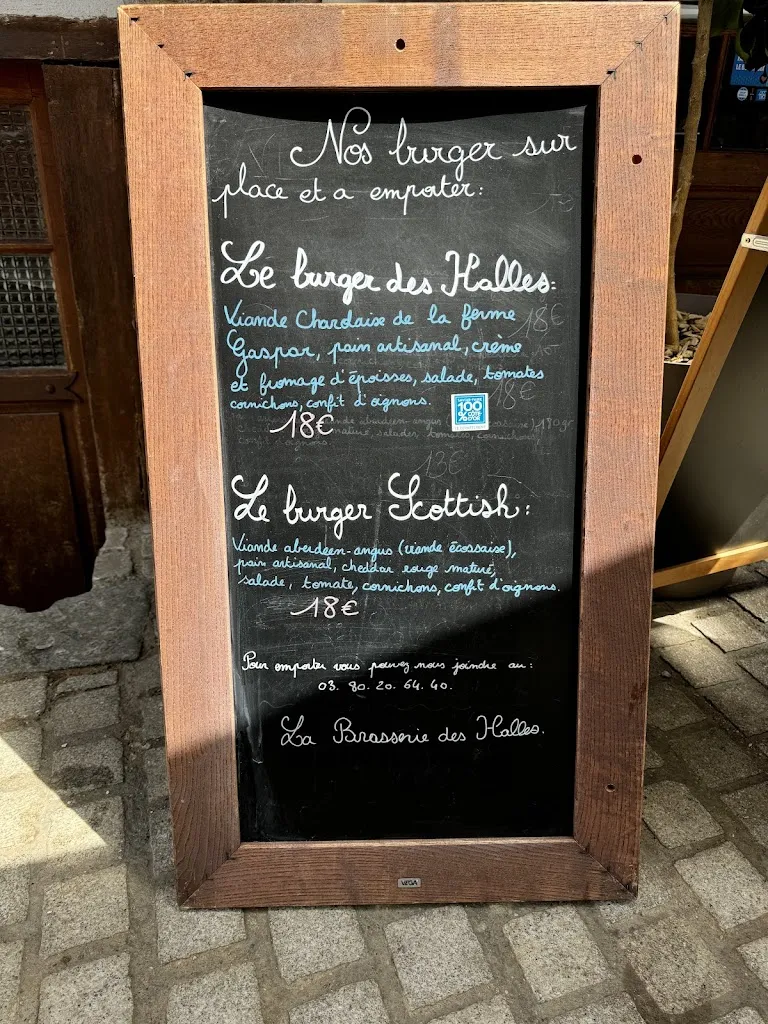 Nos burger sur
place et a emporter:
Le burger des Halles:
Viande Charolaise de la ferme
Gaspar, pain artisanal, crème
et fromage d'époisses, salade, tomates
cornichons, confit d'oignons.
18€
100%
CÔTE
D'OR
Le burger Scottish:
Viande aberdeen-angus (viande écossaise),
pain artisanal, cheddar rouge maturé,
salade, tomate, cornichons, confit d'oignons.
18€
Pour emporter vous pouvez nous joindre au:
03. 80. 20. 64. 40.
La Brasserie des Halles.
VEGA